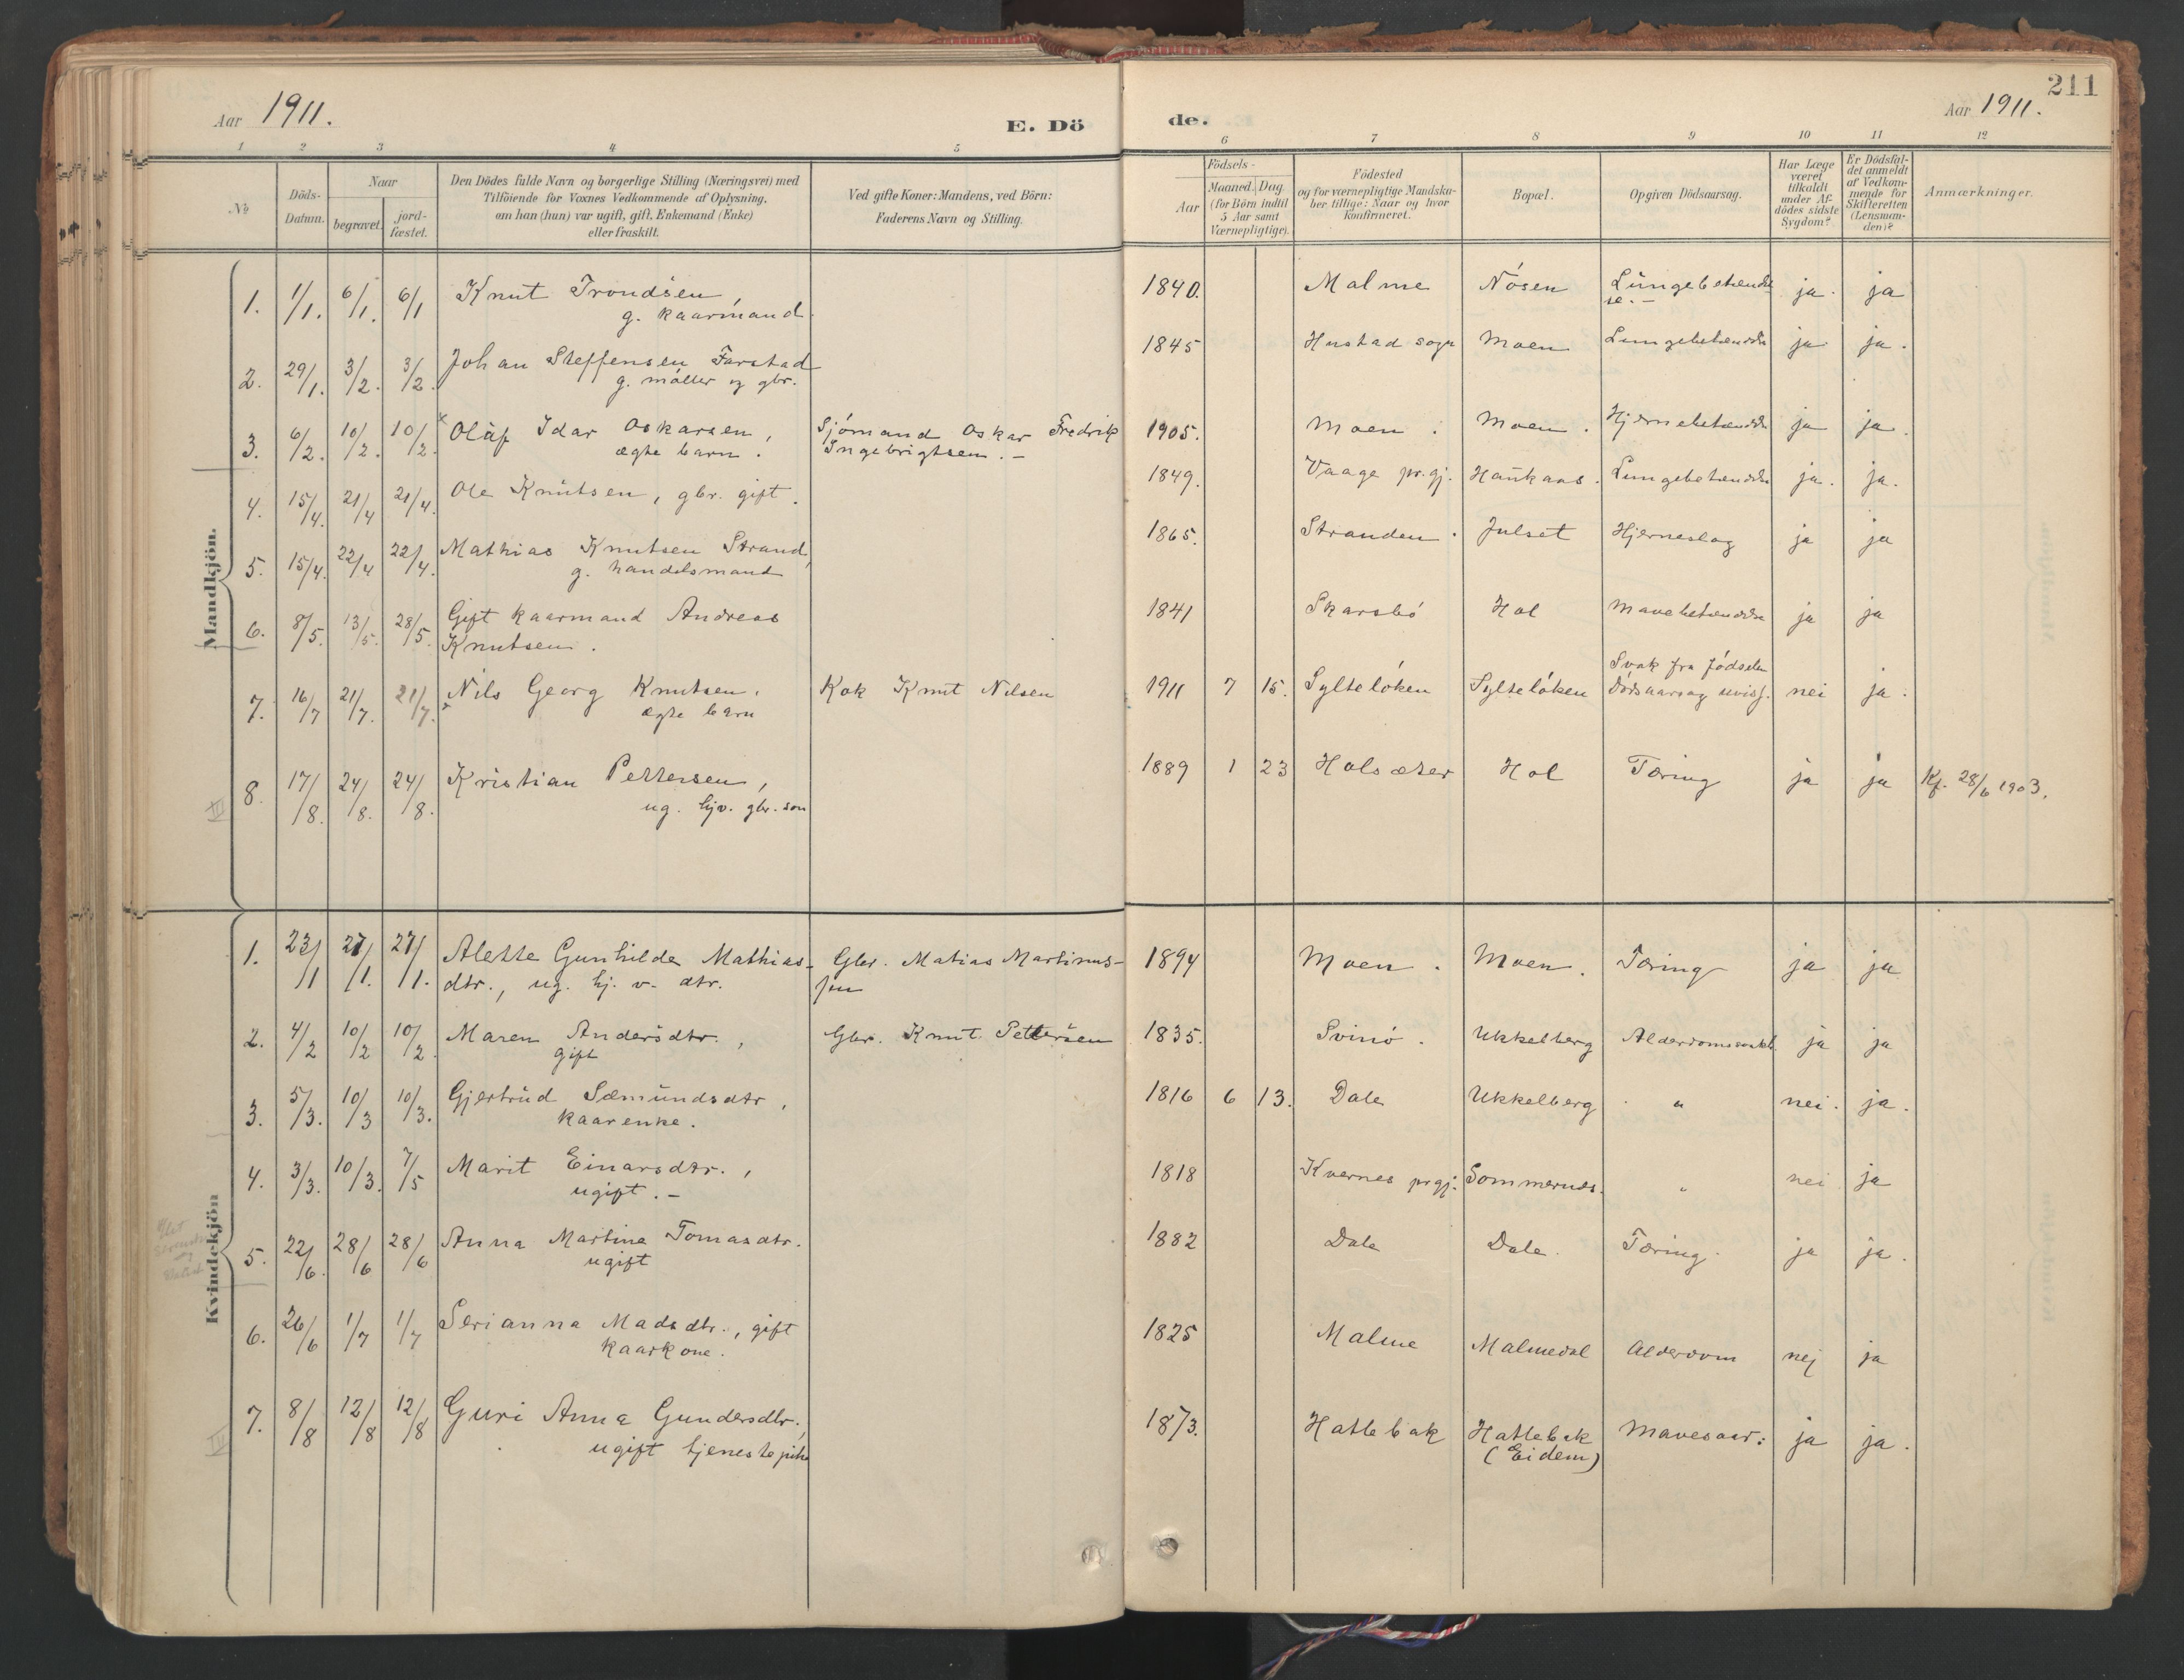 211
Aar 1911.
E. Dö
de.
Aar 1911.
1 2 3 4 5 6 7 8 9 10 11 12
No
Döds-Datum.
Naar
begravet.
jord-fæstet.
Den Dödes fulde Navn og borgerlige Stilling (Næringsvei) med
Tilföiende for Voxnes Vedkommende af Oplysning,
om han (hun) var ugift, gift, Enkemand (Enke)
eller fraskilt.
Ved gifte Koner: Mandens, ved Börn:
Faderens Navn og Stilling.
Födsels-
Aar
Maaned. Dag.
(for Börn indtil
5 Aar samt
Værnepligtige).
Födested
og for værnepligtige Mandska-
ber tillige: Naar og hvor
konfirmeret.
Bopæl.
Opgiven Dödsaarsag.
Har Læge
været
tilkaldt
under Af-
dödes sidste
Sygdom?
Er Dödsfal-
det anmeldt
af Vedkom-
mende for
Skifteretten
(Lensman-
den)?
Anmærkninger.
Mandkjön.
1. 1/1. 6/1. 6/1 Knut Trondsen, 1840. Malme Nósen Lungebetændel ja. ja
g. kaarmand. se.-
2. 29/1. 3/2. 3/2. Johan Steffensen Farstad 1845 Hustad sogn Moen Lungebetændelse ja ja.
g. móller og gbr.
3. 6/2. 10/2. 10/2. Olaf Idar Oskarsen, Sjómand Oskar Fredrik 1905. Moen. Moen. Hjernebetændelse ja ja.
ægte barn. Ingebrigtsen.-
4. 15/4. 21/4 21/4. Ole Knutsen, gbr. gift. 1849. Vaage pr.gj. Haukaas. Lungebetændelse ja. ja.
5. 15/4. 22/4 22/4. Mathias Knutsen Strand, 1865. Stranden. Julset Hjerneslag ja ja
g. handelsmand
6. 8/5. 13/5. 28/5. Gift kaarmand Andreas 1841 Skarsbó Hol Mavebetændelse ja ja
Knutsen.
7. 16/7 21/7. 21/7. Nils Georg Knutsen. Kok Knut Nilsen 1911 7 15. Sylteлóken Sylteлóken Svak fra fódselen
ægte barn Dódsaarsag uviss. nei ja.
8. 17/8. 24/8. 24/8. Kristian Pettersen, 1889 1 23 Holsæter Hol Tæring ja ja Kf. 28/6 1903.
ug. hjv. gbr. son
Kvindekjön
1. 23/1 27/1. 27/1. Alette Gunhilde Mathias- Gbr. Matias Martinus- 1894 Moen. Moen. Tæring ja ja
dtr., ug. hj. v. dtr. sen
2. 4/2 10/2 10/2. Maren Andersdtr., Gbr. Knut Pettersen 1835. Svinó. Ukkelberg Alderdomssvakh. ja ja
gift
3. 5/3. 10/3 10/3. Gjertrud Sæmundsdtr, 1816 6 13. Dale Ukkelberg " nei. ja.
kaarenke.
4. 3/3. 10/3. 7/5 Marit Einarsdtr., 1818 Kvernes prgj. Sommernes. " nei ja
ugift.-
5. 22/6. 28/6 28/6 Anna Martina Tomasdtr. 1882 Dale Dale. Tæring. ja ja.
ugift
6. 26/6 1/7 1/7 Serianna Madsdtr., gift 1825 Malme Malmedal Alderdom nej ja
kaarkone.
7. 8/8 12/8 12/8 Guri Anna Gundersdtr., 1873. Hattebak Hattebak Mavesaar: ja ja.
ugift tjenestepike (Eidem)